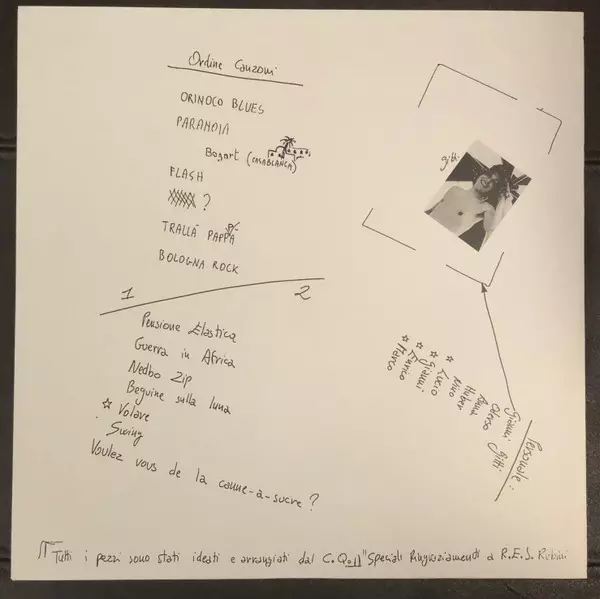 Ordine Canzoni
ORINOCO BLUES
PARANOIA
Bogart (CASABLANCA)
FLASH
?
TRALLÀ PAPPA
BOLOGNA ROCK
1 2
Pensione Elastica
Guerra in Africa
Nedbo Zip
Beguine sulla luna
☆ Volare
Swing
Voulez vous de la canne-a-sucre?
gitti
Personale:
Gianni Gitti
Anna
Huber
Nico
☆ Lucio
☆ Gianni
☆ Enrico
☆ Marco
Tutti i pezzi sono stati ideati e arrangiati dal C.Q. Speciali Ringraziamenti a R.E.S. Rubini